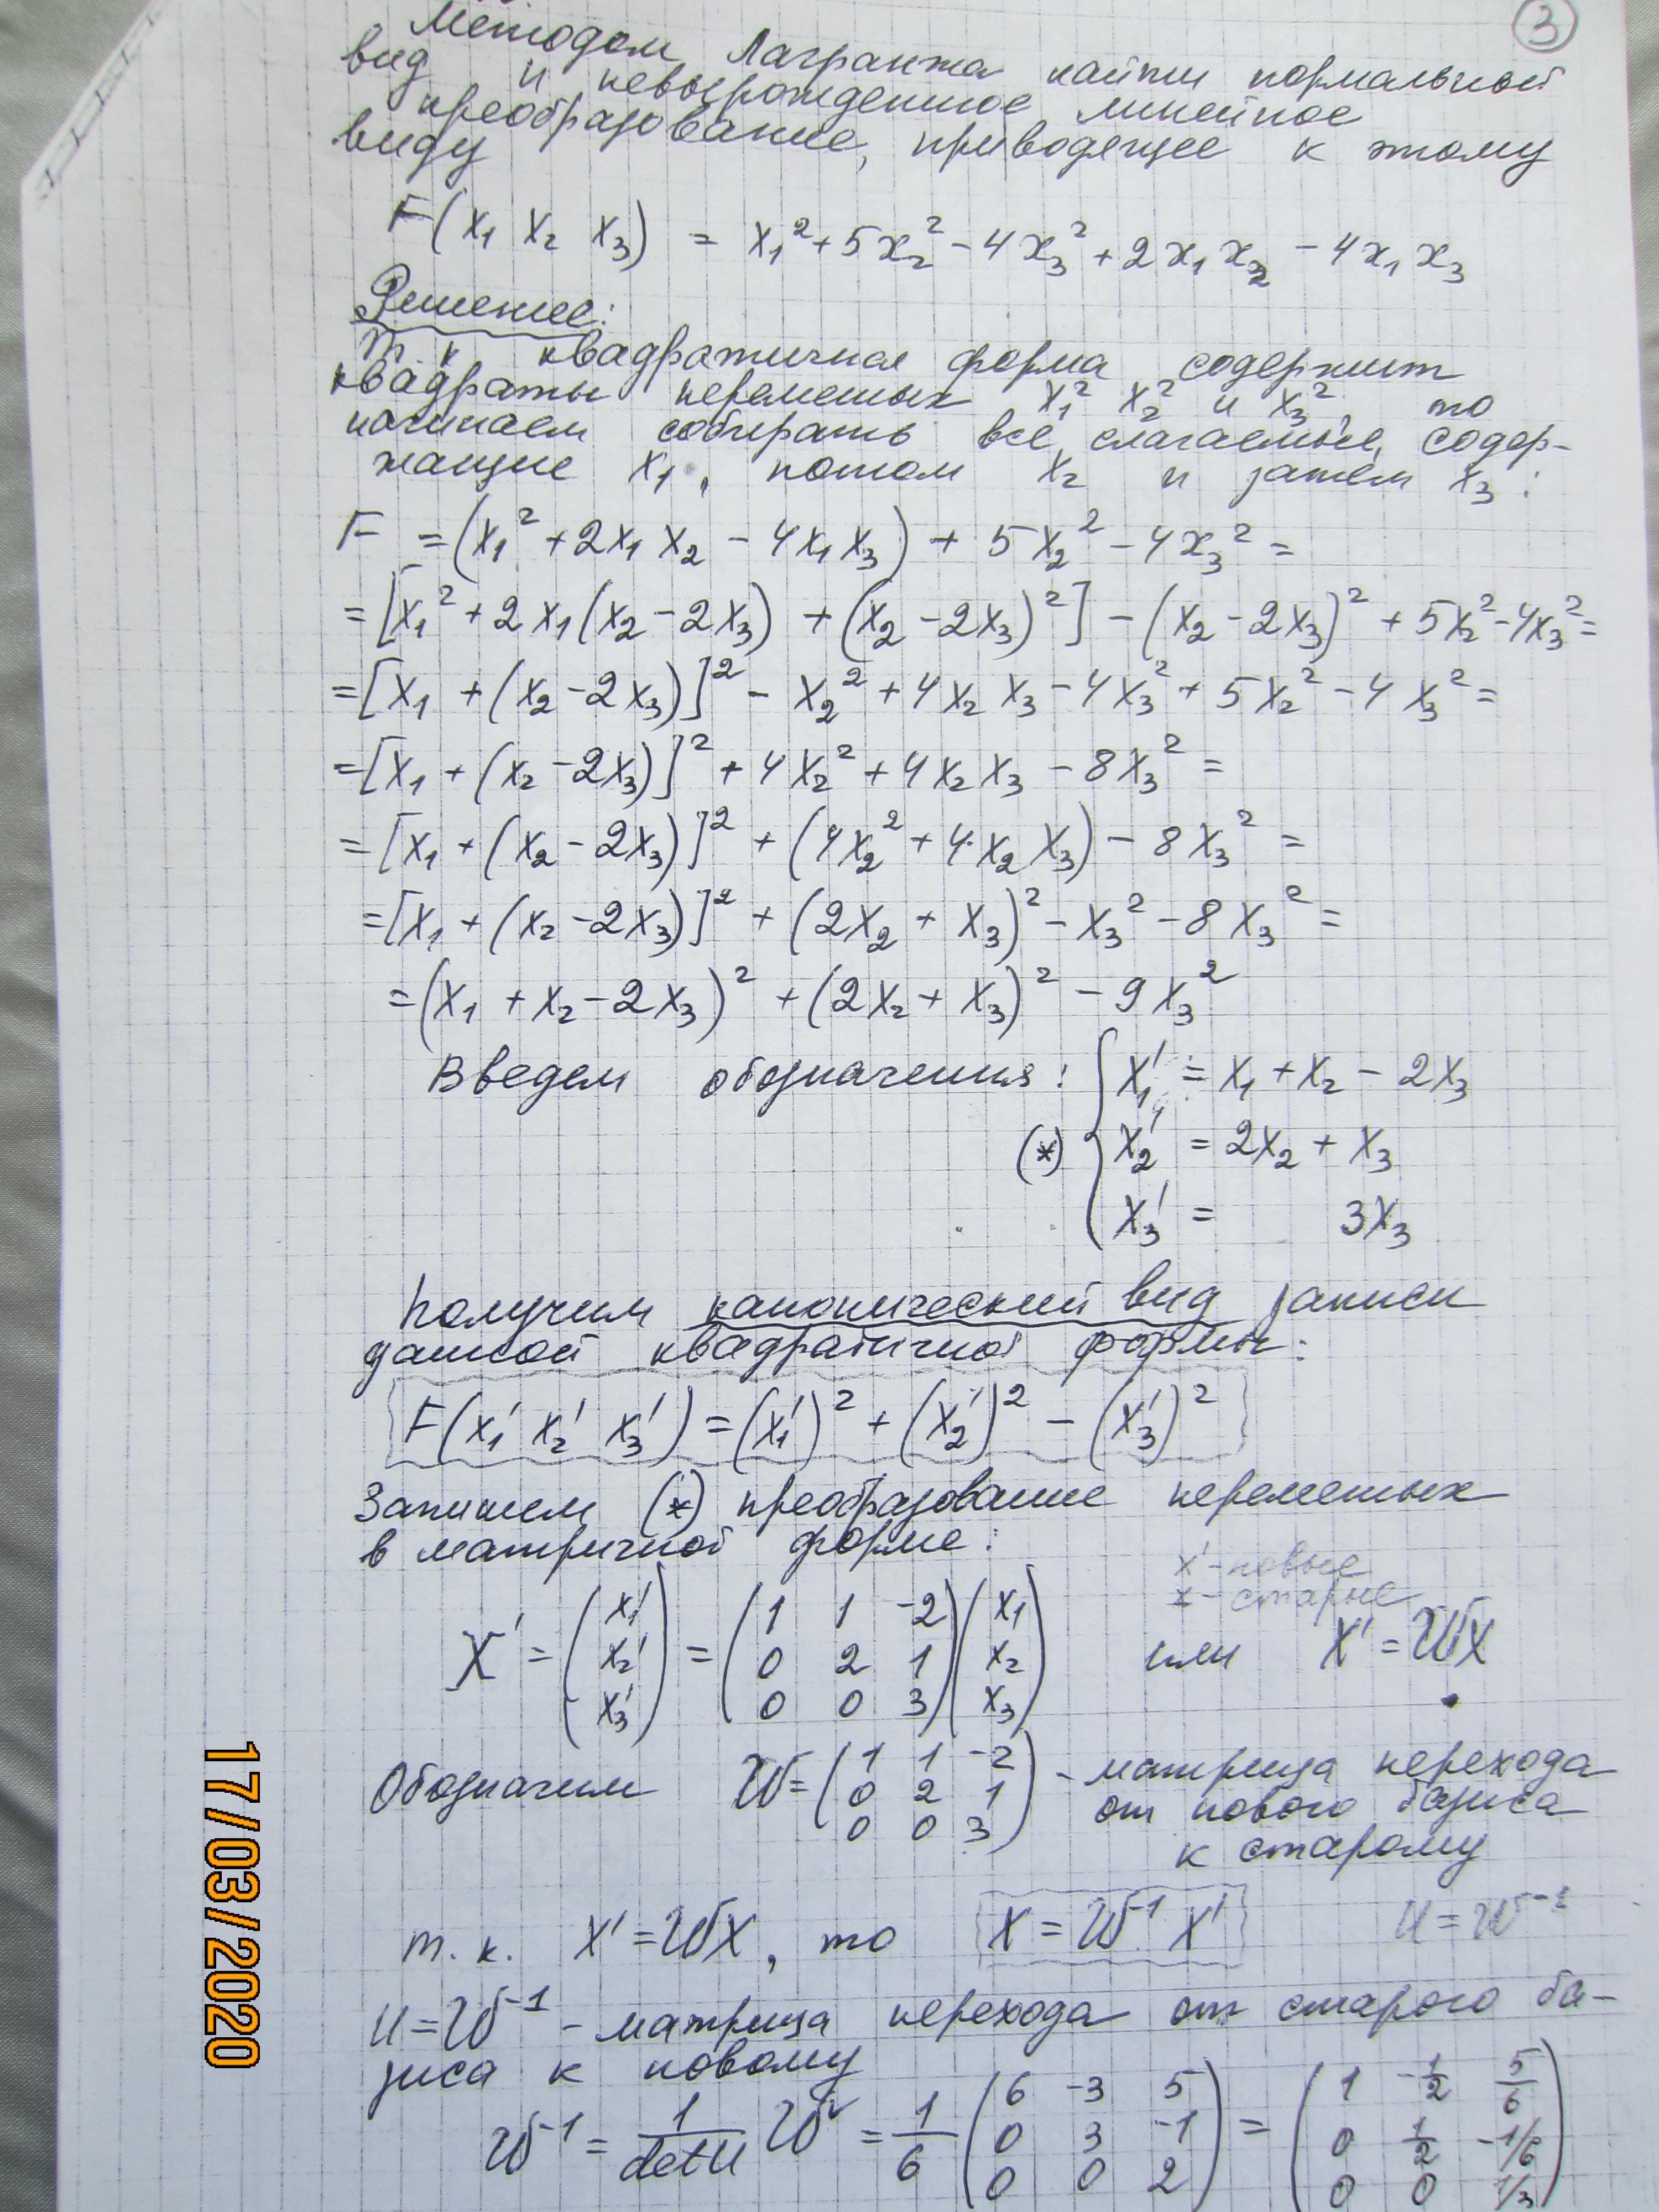 3
Методом Лагранжа найти нормальный
вид и невырожденное линейное
преобразование, приводящее к этому
виду
F(x₁ x₂ x₃) = x₁² + 5x₂² - 4x₃² + 2x₁x₂ - 4x₁x₃
Решение:
т. к квадратичная форма содержит
квадраты переменных x₁² x₂² и x₃², то
начинаем собирать все слагаемые, содер-
жащие x₁, потом x₂ и затем x₃:
F = (x₁² + 2x₁x₂ - 4x₁x₃) + 5x₂² - 4x₃² =
= [x₁² + 2x₁(x₂ - 2x₃) + (x₂ - 2x₃)²] - (x₂ - 2x₃)² + 5x₂² - 4x₃² =
= [x₁ + (x₂ - 2x₃)]² - x₂² + 4x₂x₃ - 4x₃² + 5x₂² - 4x₃² =
= [x₁ + (x₂ - 2x₃)]² + 4x₂² + 4x₂x₃ - 8x₃² =
= [x₁ + (x₂ - 2x₃)]² + (4x₂² + 4·x₂x₃) - 8x₃² =
= [x₁ + (x₂ - 2x₃)]² + (2x₂ + x₃)² - x₃² - 8x₃² =
= (x₁ + x₂ - 2x₃)² + (2x₂ + x₃)² - 9x₃²
Введем обозначения: { x₁' = x₁ + x₂ - 2x₃
(*) x₂' = 2x₂ + x₃
x₃' = 3x₃
Получим канонический вид записи
данной квадратичной формы:
F(x₁' x₂' x₃') = (x₁')² + (x₂')² - (x₃')²
Запишем (*) преобразование переменных
в матричной форме:
x' - новые
x - старые
X' = (x₁' x₂' x₃') = (1 1 -2 0 2 1 0 0 3) (x₁ x₂ x₃) или X' = WX
Обозначим W = (1 1 -2 0 2 1 0 0 3) - матрица перехода
от нового базиса
к старому
т. к. X' = WX, то X = W⁻¹ X' U = W⁻¹
U = W⁻¹ - матрица перехода от старого ба-
зиса к новому
W⁻¹ = 1/detU W̃ = 1/6 (6 -3 5 0 3 -1 0 0 2) = (1 -1/2 5/6 0 1/2 -1/6 0 0 1/3)
17/03/2020